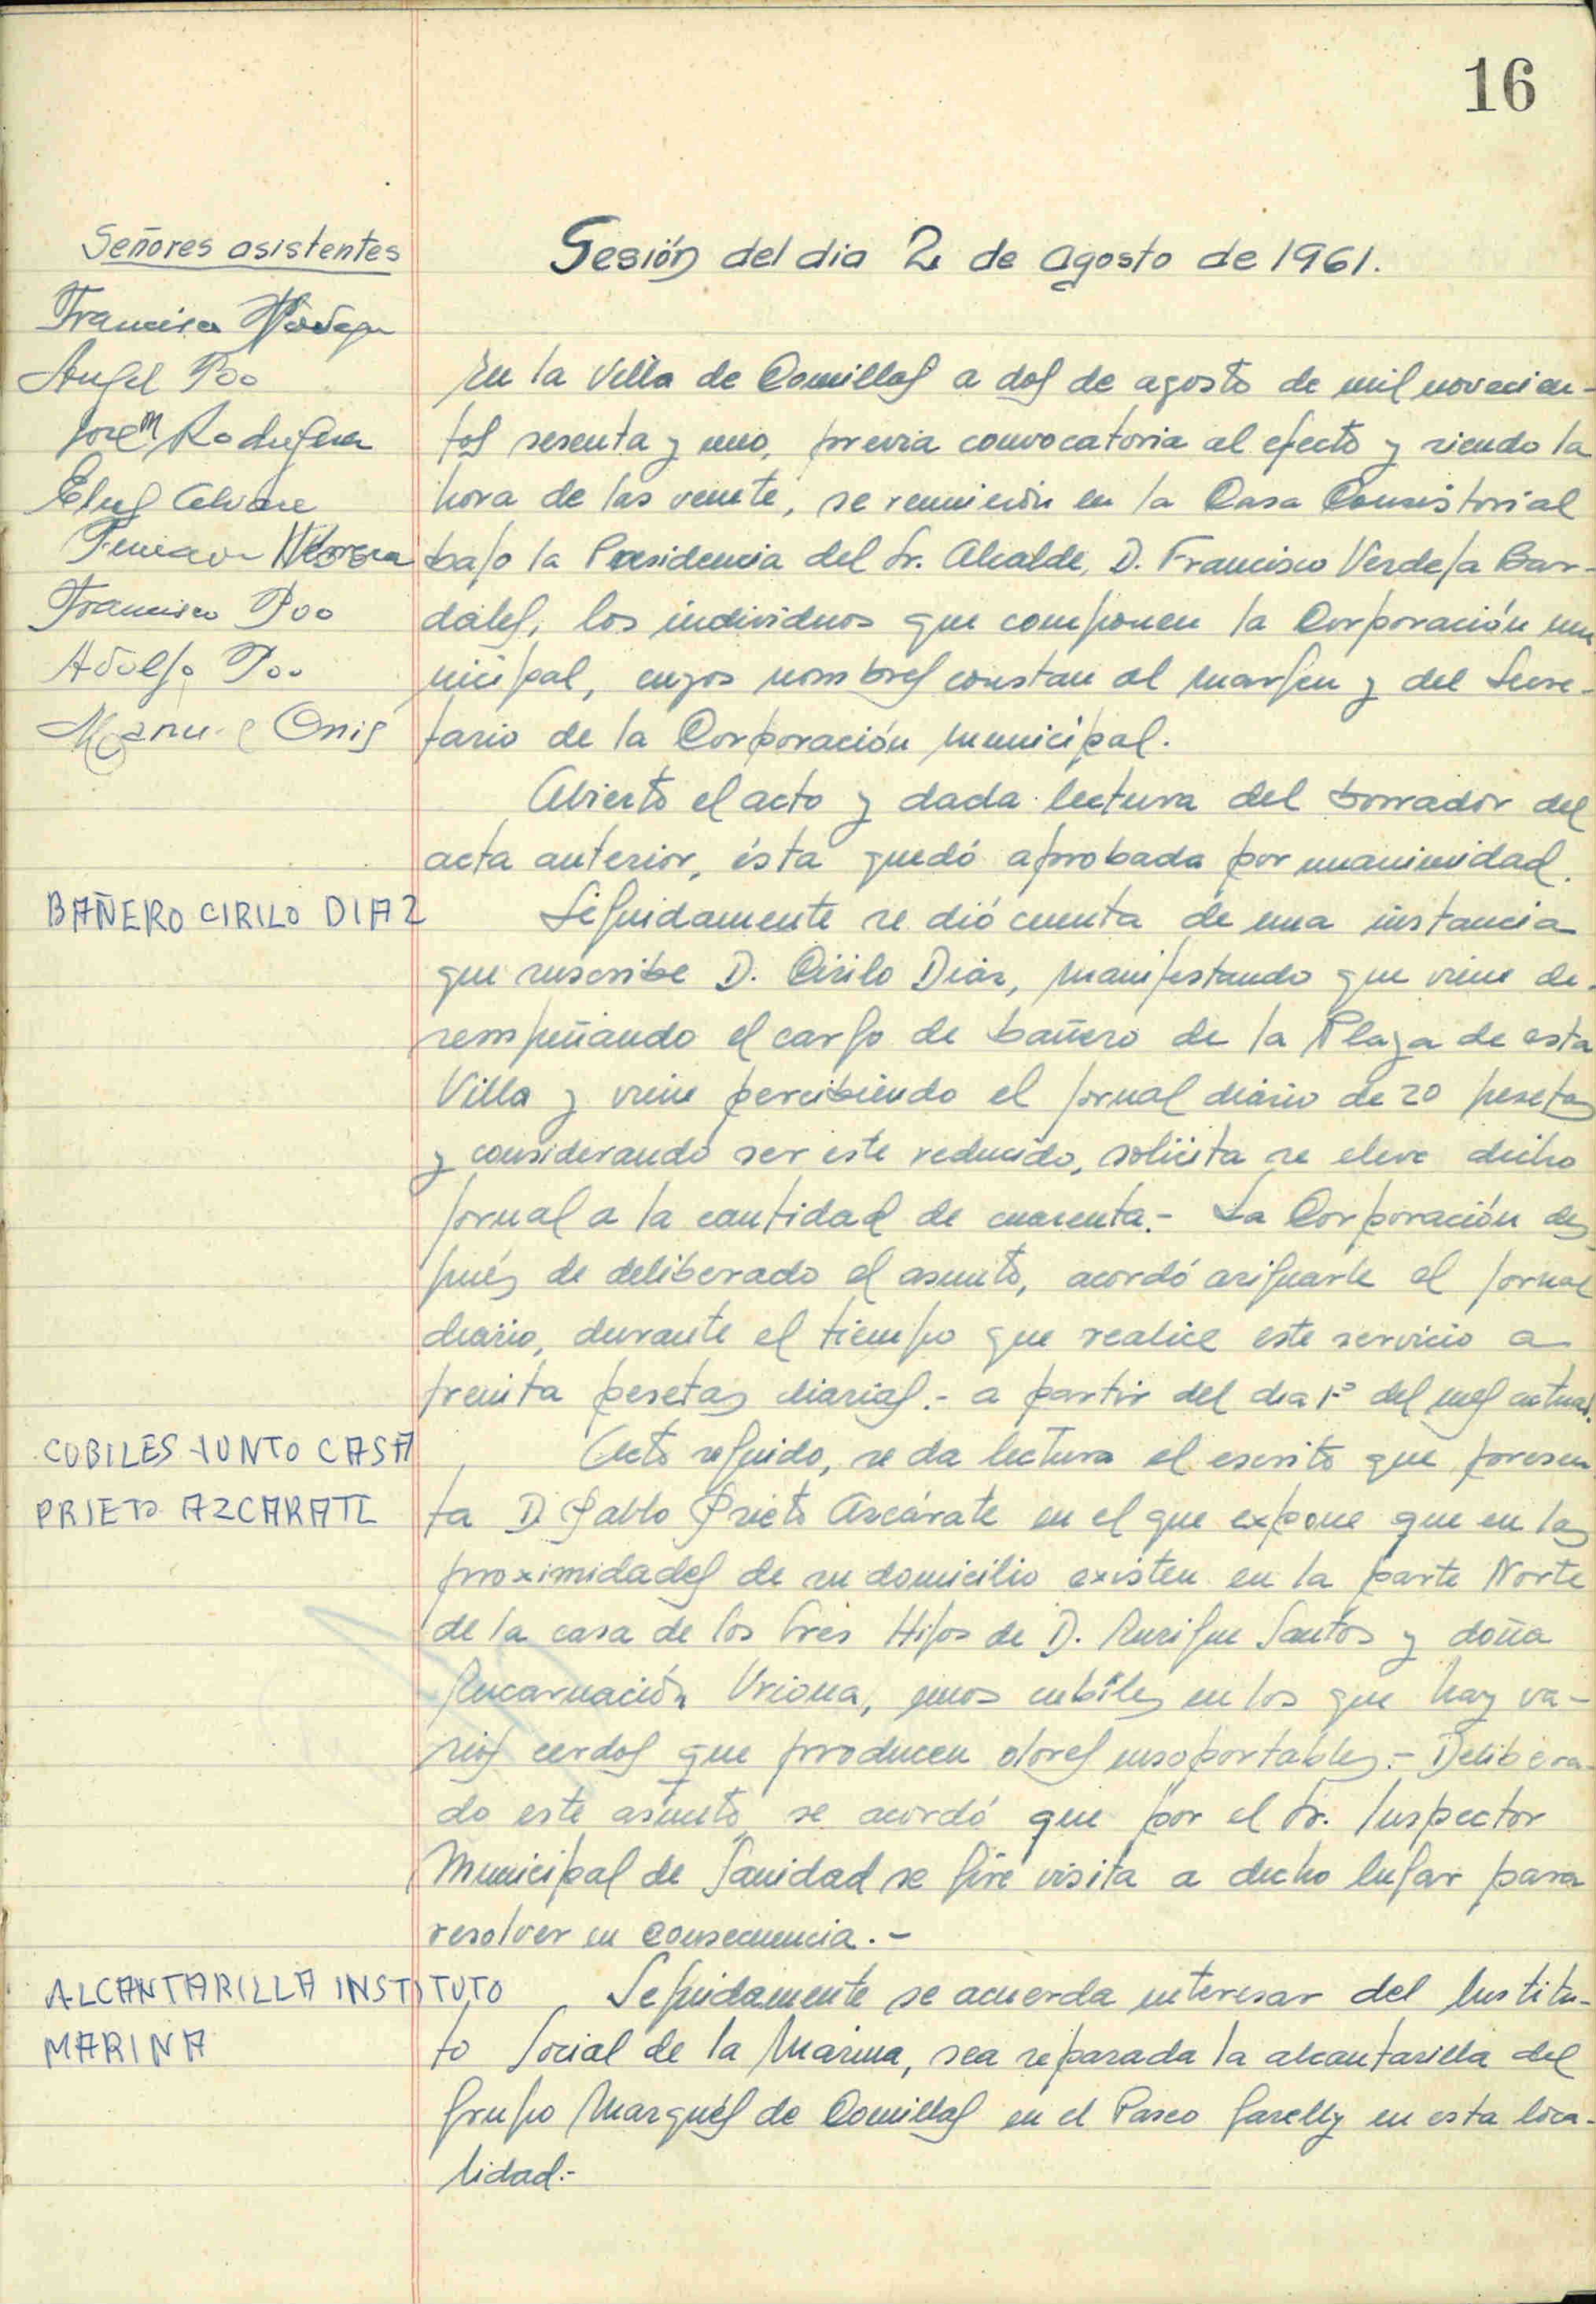 16
Señores asistentes
Sesión del dia 2 de agosto de 1961.
Francisco
Angel Poo
José M Rodríguez
Francisco Poo
Adolfo Poo
Manuel Onis
En la Villa de Comillas a dos de agosto de mil novecien-
tos sesenta y uno, previa convocatoria al efecto y siendo la
hora de las veinte, se reunieron en la Casa Consistorial
bajo la Presidencia del Sr. Alcalde, D. Francisco Verdeja Bar-
dales, los individuos que componen la Corporación mu
nicipal, cuyos nombres constan al margen y del Secre-
tario de la Corporación municipal.
Abierto el acto y dada lectura del borrador del
acta anterior, ésta quedó aprobada por unanimidad.
BAÑERO CIRILO DIAZ
Seguidamente se dió cuenta de una instancia
que suscribe D. Cirilo Diaz, manifestando que viene de-
sempeñando el cargo de bañero de la Playa de esta
Villa y viene percibiendo el jornal diario de 20 pesetas
y considerando ser este reducido, solicita se eleve dicho
jornal a la cantidad de cuarenta.- La Corporación des
pués de deliberado el asunto, acordó asignarle el jornal
diario, durante el tiempo que realice este servicio a
treinta pesetas diarias.- a partir del dia 1º del mes actual.
CUBILES JUNTO CASA
PRIETO AZCARATE
Acto seguido, se da lectura el escrito que presen
ta D. Pablo Prieto Azcárate en el que expone que en las
proximidades de su domicilio existen en la parte Norte
de la casa de los Sres Hijos de D. Enrique Santos y doña
Encarnación Uriona, unos cubiles en los que hay va-
rios cerdos que producen olores insoportables.- Delibera-
do este asunto, se acordó que por el Sr. Inspector
Municipal de Sanidad se gire visita a dicho lugar para
resolver en consecuencia.-
ALCANTARILLA INSTITUTO
MARINA
Seguidamente se acuerda interesar del Institu-
to Social de la Marina, sea reparada la alcantarilla del
Grupo Marqués de Comillas en el Paseo Garelly en esta loca-
lidad.-